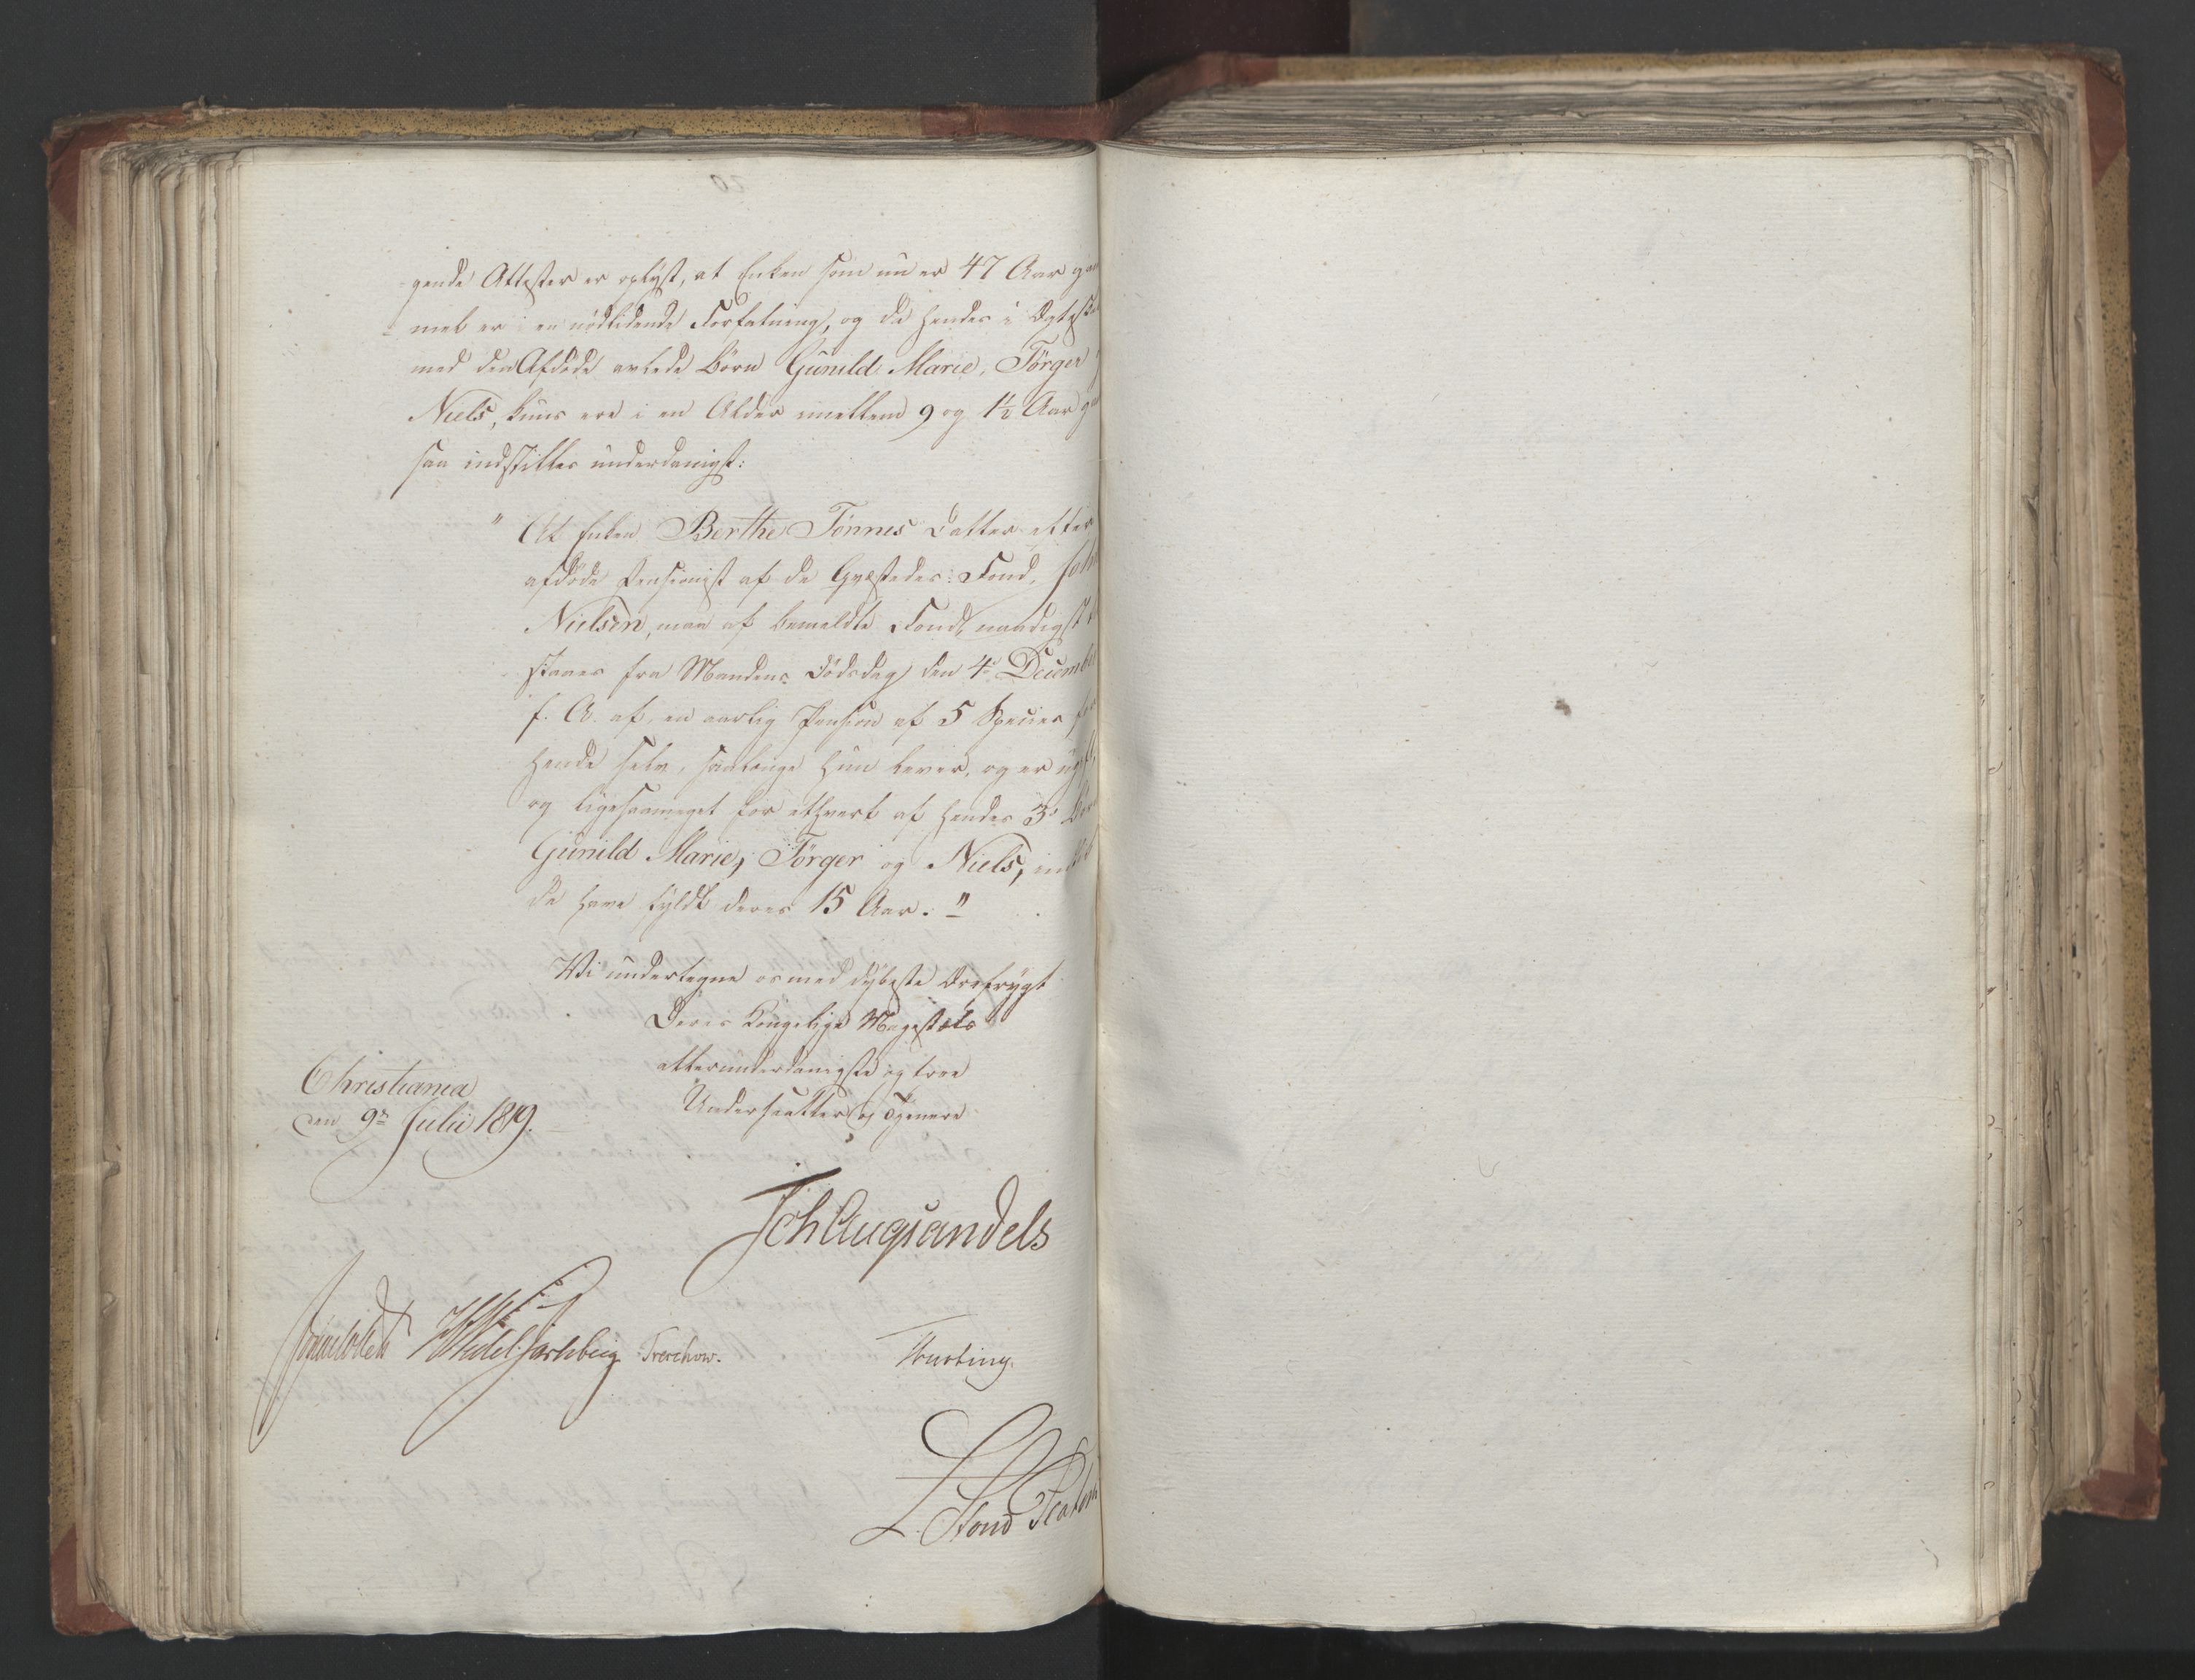 gende Attester er oplyst, at Enken som nu er 47 Aar gam
mel er i en nödlidende Forfatning, og da hendes i Ægteska
med den Afdöde avlede Börn Gunild Marie, Törger
Niels, kuns ere i en Alder imellem 9 og 1½ Aar ga
saa indstilles underdanigst:
" At Enken Berthe Tönnes Datter efter
afdöde Pensionist af de Qvæstedes Fond, John
Nielsen, maa af bemeldte Fond, naadigst
staaes fra Mandens Dödsdag den 4de December
f. A. af, en aarlig Pension af 5 Species for
hende selv, saalænge hun lever, og er ugift,
og ligesaameget for ethvert af hendes 3de Börn
Gunild Marie, Törger og Niels, indtil
de have fyldt deres 15 Aar. "
Vi undertegne os med dybeste Ærefrygt
Deres Kongelige Majestæts
allerunderdanigste og troe
Undersaatter og Tjenere
Christiania
den 9de Julii 1819.
Joh Aug Sandels
Sommerhielm
HWedel Jarlsberg
Treschow.
Motzfeldt